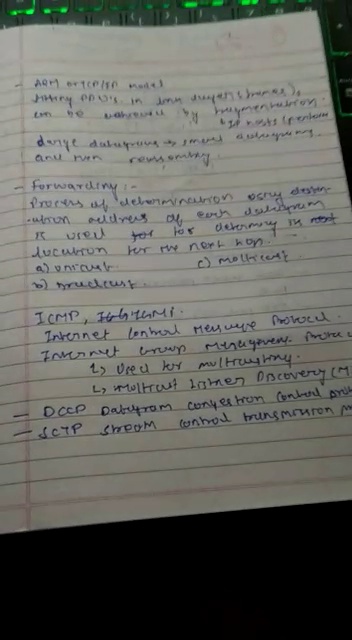 - ARM or TCP/IP model
fitting PDU's in link layer (frames),
can be achieved by fragmentation.
↳ IP hosts (perform
large datagrams → small datagrams
and then reassembly.
- Forwarding :-
Process of determination using destin-
ation address of each datagram
is used for determing in
location for the next hop.
a) unicast. c) multicast
b) broadcast.
ICMP,
Internet Control Message Protocol.
Internet Group Management Protoc
↳ Used for multicasting.
↳ Multicast Listner Discovery (M
- DCCP Datagram congestion control pro
- SCTP Stream control transmission